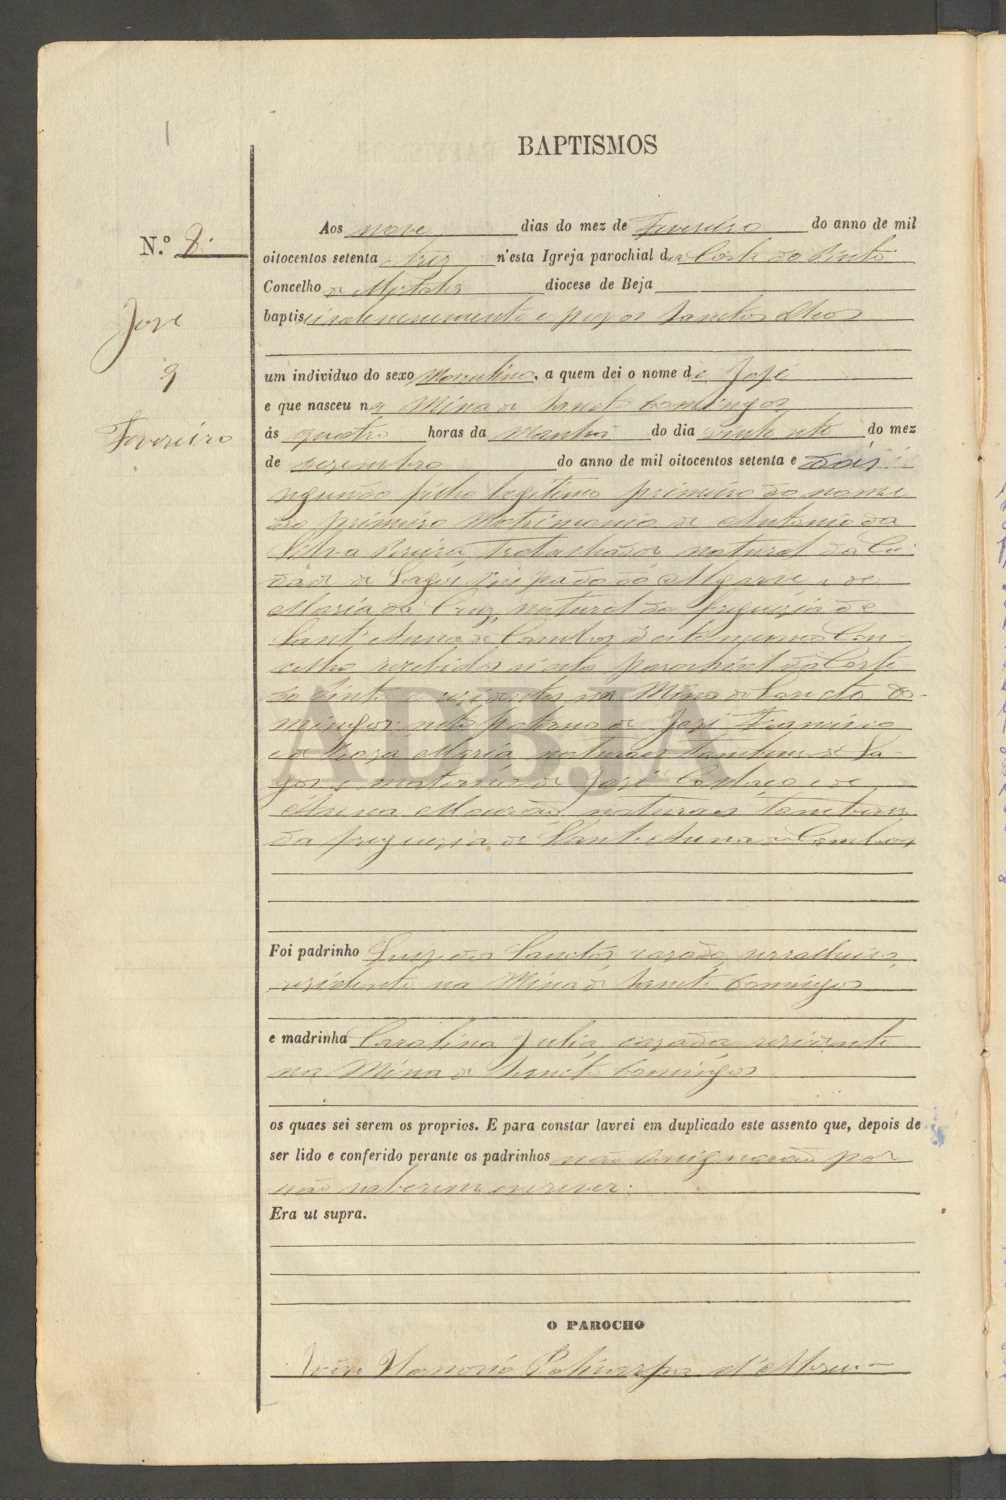 BAPTISMOS
N.º 8.
José
9
Fevereiro
Aos nove dias do mez de Fevereiro do anno de mil
oitocentos setenta e trez n'esta Igreja parochial da Corte do Pinto
Concelho de Mertola diocese de Beja
baptisei solemnemente e puz os Sanctos Oleos
um individuo do sexo Masculino, a quem dei o nome de José
e que nasceu na Mina de Sancto Domingos
ás quatro horas da Manhã do dia vinte oito do mez
de dezembro do anno de mil oitocentos setenta e dois
segundo filho legitimo primeiro do nome
do primeiro Matrimonio de Antonio da
Silva Pereira, Trabalhador natural da Ci-
dade de Lagos, Bispado do Algarve, e de
Maria da Cruz, natural da freguezia de
Sant'Anna de Cambas d'este mesmo Con
celho recebidos n'esta parochial da Corte
do Pinto e rezidentes na Mina de Sancto Do-
mingos: neto paterno de José Francisco
e de Roza Maria naturaes tambem de La
gos e materno de José e de
Anna naturaes tambem
da freguezia de Sant'Anna de Cambas
Foi padrinho Luiz dos Sanctos, cazado, serralheiro,
rezidente na Mina de Sancto Domingos
e madrinha Carolina Julia, cazada rezidente
na Mina de Sancto Domingos
os quaes sei serem os proprios. E para constar lavrei em duplicado este assento que, depois de
ser lido e conferido perante os padrinhos não assignarão por
não saberem escrever.
Era ut supra.
O PAROCHO
Policarpo d'Abreu
ADBJA